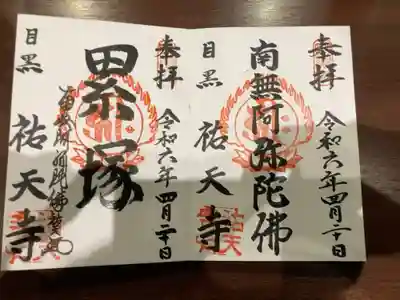 奉拝
令和六年四月二十日
南無阿弥陀佛
目黒 祐天寺
奉拝
令和六年四月二十日
累塚
目黒 祐天寺